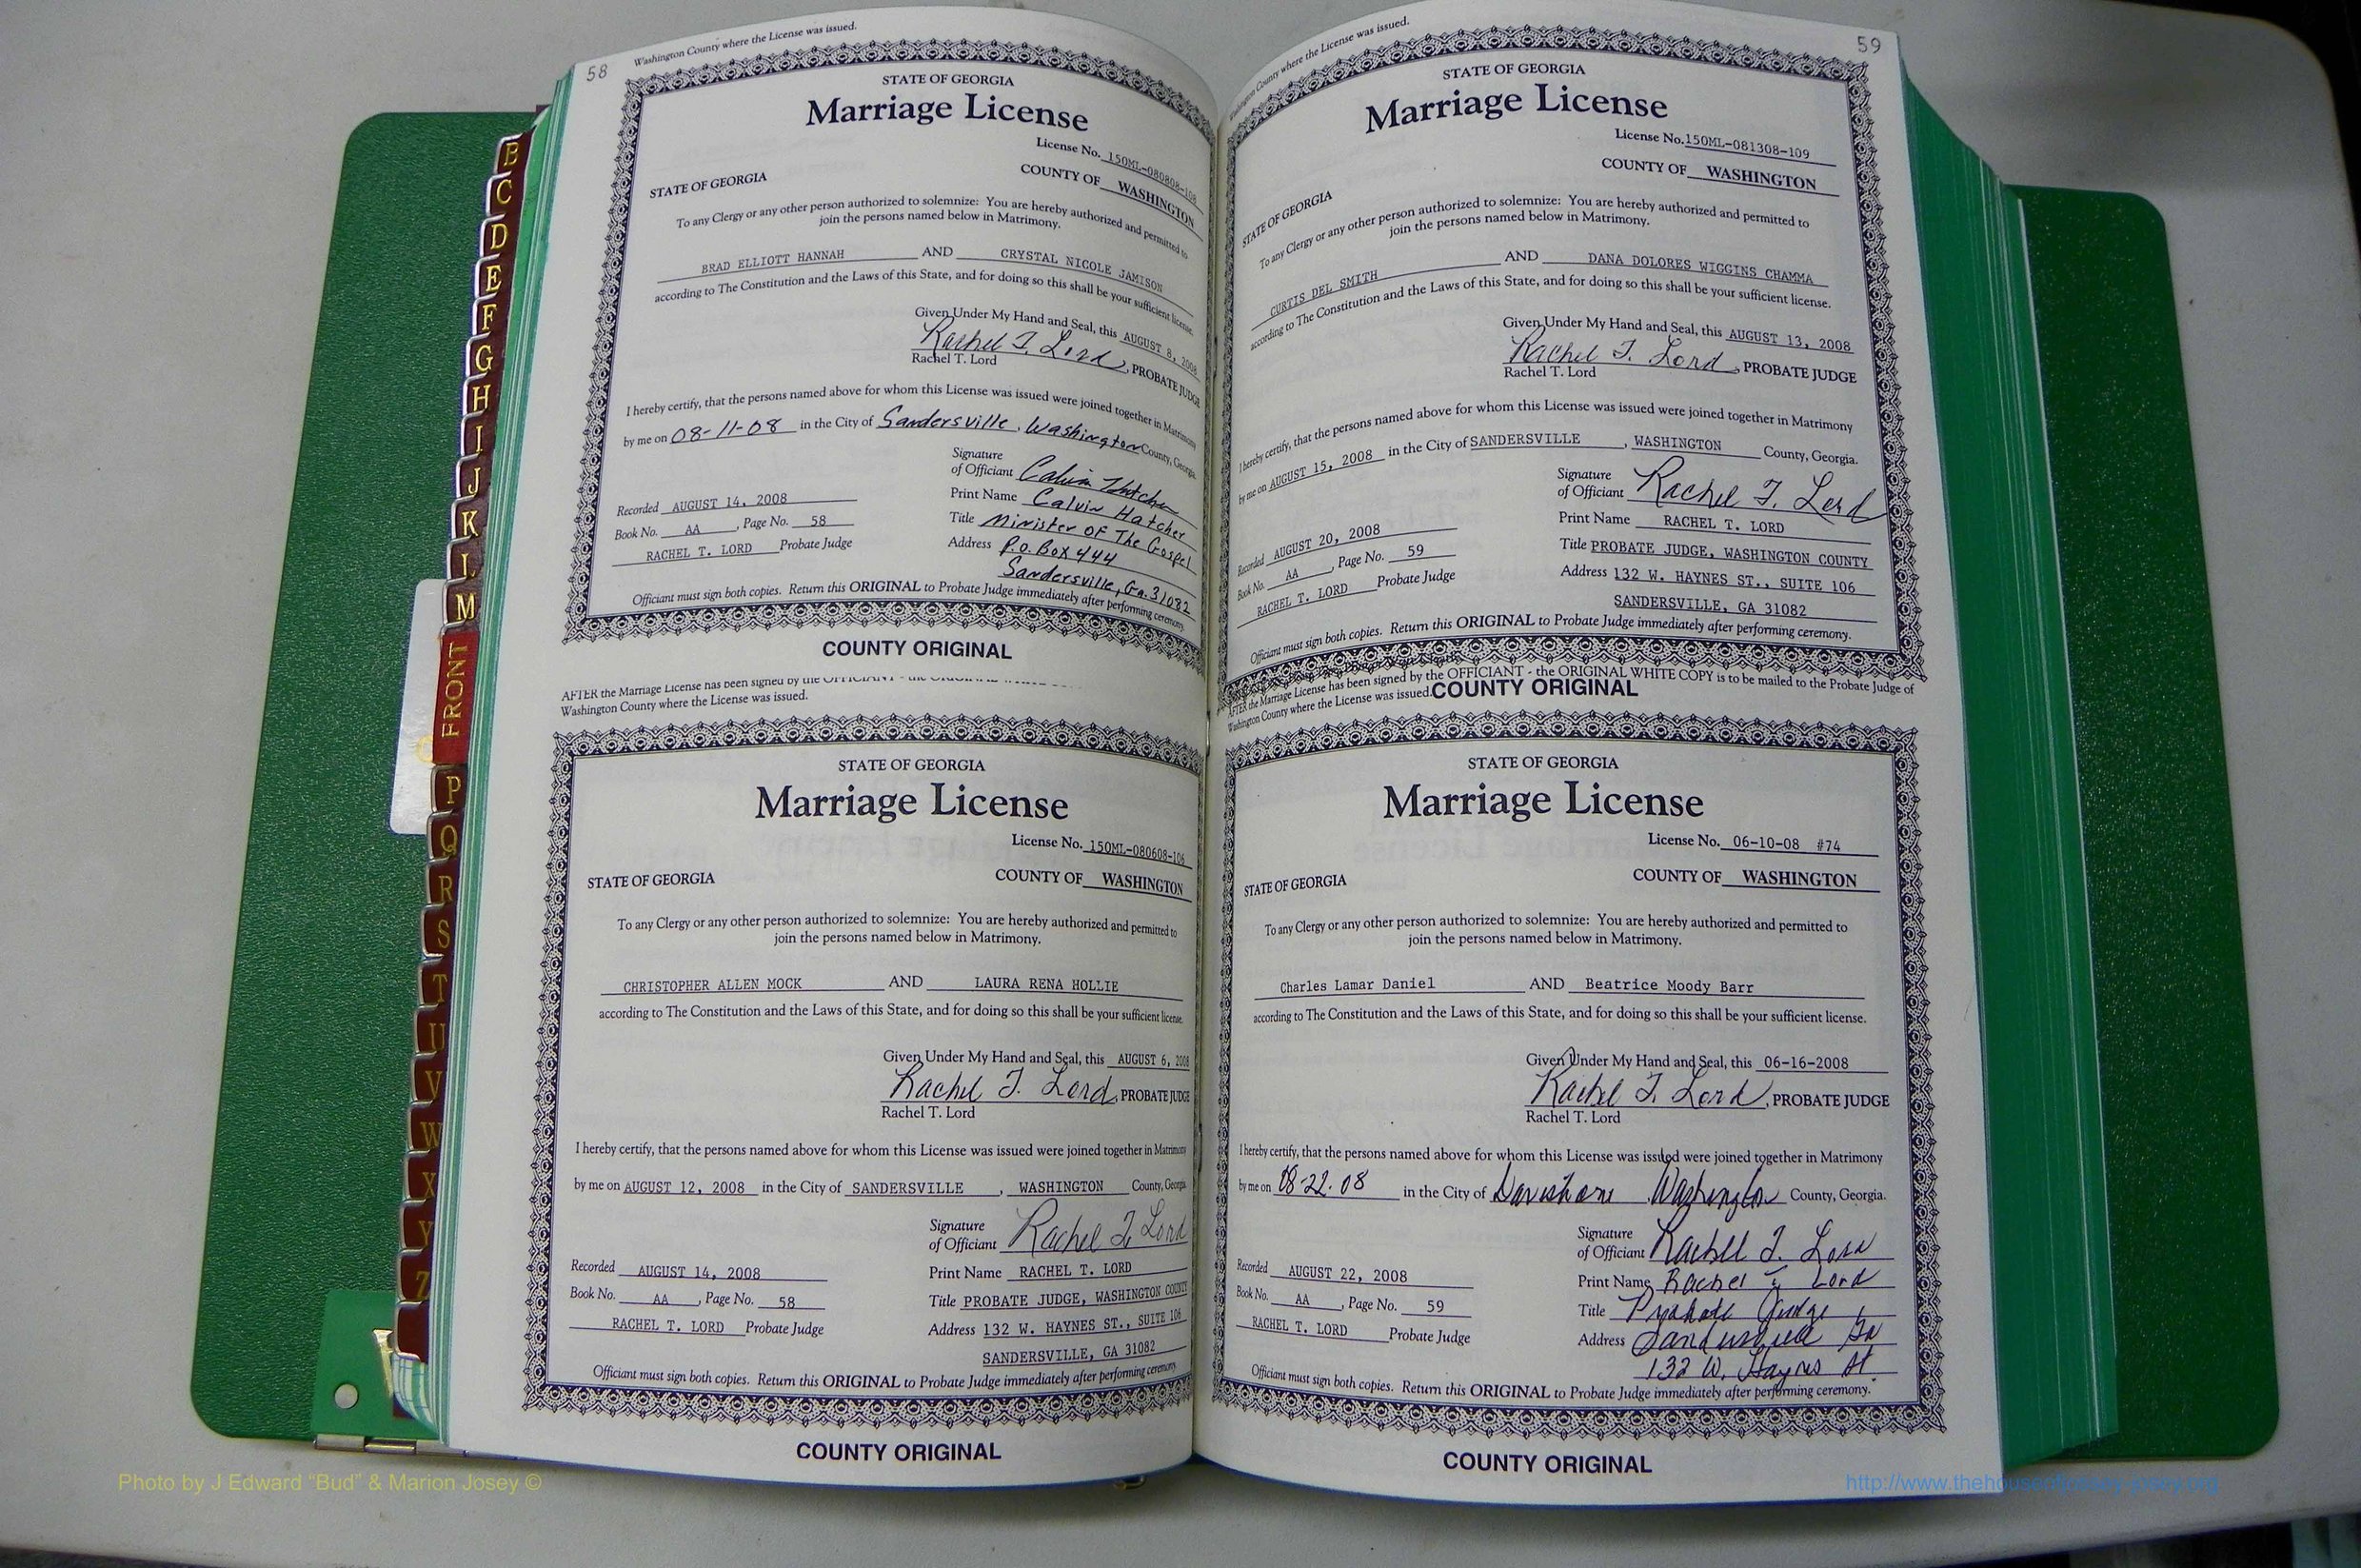 58
Washington County where the License was issued.
STATE OF GEORGIA
Marriage License
License No. 150ML-080808-108
STATE OF GEORGIA
COUNTY OF WASHINGTON
To any Clergy or any other person authorized to solemnize: You are hereby authorized and permitted to
join the persons named below in Matrimony.
BRAD ELLIOTT HANNAH AND CRYSTAL NICOLE JAMISON
according to The Constitution and the Laws of this State, and for doing so this shall be your sufficient license.
Given Under My Hand and Seal, this AUGUST 8, 2008
Rachel T. Lord, PROBATE JUDGE
Rachel T. Lord
I hereby certify, that the persons named above for whom this License was issued were joined together in Matrimony
by me on 08-11-08 in the City of Sandersville, Washington County, Georgia.
Signature
of Officiant Calvin Hatcher
Print Name Calvin Hatcher
Title Minister OF The Gospel
Address P.O. Box 444
Sandersville, Ga. 31082
Recorded AUGUST 14, 2008
Book No. AA, Page No. 58
RACHEL T. LORD Probate Judge
Officiant must sign both copies. Return this ORIGINAL to Probate Judge immediately after performing ceremony.
COUNTY ORIGINAL
AFTER the Marriage License has been signed by the OFFICIANT - the ORIGINAL
Washington County where the License was issued.
STATE OF GEORGIA
Marriage License
License No. 150ML-080608-106
STATE OF GEORGIA
COUNTY OF WASHINGTON
To any Clergy or any other person authorized to solemnize: You are hereby authorized and permitted to
join the persons named below in Matrimony.
CHRISTOPHER ALLEN MOCK AND LAURA RENA HOLLIE
according to The Constitution and the Laws of this State, and for doing so this shall be your sufficient license.
Given Under My Hand and Seal, this AUGUST 6, 2008
Rachel T. Lord, PROBATE JUDGE
Rachel T. Lord
I hereby certify, that the persons named above for whom this License was issued were joined together in Matrimony
by me on AUGUST 12, 2008 in the City of SANDERSVILLE, WASHINGTON County, Georgia.
Signature
of Officiant Rachel T. Lord
Print Name RACHEL T. LORD
Title PROBATE JUDGE, WASHINGTON COUNTY
Address 132 W. HAYNES ST., SUITE 106
SANDERSVILLE, GA 31082
Recorded AUGUST 14, 2008
Book No. AA, Page No. 58
RACHEL T. LORD Probate Judge
Officiant must sign both copies. Return this ORIGINAL to Probate Judge immediately after performing ceremony.
COUNTY ORIGINAL
59
Washington County where the License was issued.
STATE OF GEORGIA
Marriage License
License No. 150ML-081308-109
STATE OF GEORGIA
COUNTY OF WASHINGTON
To any Clergy or any other person authorized to solemnize: You are hereby authorized and permitted to
join the persons named below in Matrimony.
CURTIS DEL SMITH AND DANA DOLORES WIGGINS CHAMMA
according to The Constitution and the Laws of this State, and for doing so this shall be your sufficient license.
Given Under My Hand and Seal, this AUGUST 13, 2008
Rachel T. Lord, PROBATE JUDGE
Rachel T. Lord
I hereby certify, that the persons named above for whom this License was issued were joined together in Matrimony
by me on AUGUST 15, 2008 in the City of SANDERSVILLE, WASHINGTON County, Georgia.
Signature
of Officiant Rachel T. Lord
Print Name RACHEL T. LORD
Title PROBATE JUDGE, WASHINGTON COUNTY
Address 132 W. HAYNES ST., SUITE 106
SANDERSVILLE, GA 31082
Recorded AUGUST 20, 2008
Book No. AA, Page No. 59
RACHEL T. LORD Probate Judge
Officiant must sign both copies. Return this ORIGINAL to Probate Judge immediately after performing ceremony.
AFTER the Marriage License has been signed by the OFFICIANT - the ORIGINAL WHITE COPY is to be mailed to the Probate Judge of
Washington County where the License was issued. COUNTY ORIGINAL
STATE OF GEORGIA
Marriage License
License No. 06-10-08 #74
STATE OF GEORGIA
COUNTY OF WASHINGTON
To any Clergy or any other person authorized to solemnize: You are hereby authorized and permitted to
join the persons named below in Matrimony.
Charles Lamar Daniel AND Beatrice Moody Barr
according to The Constitution and the Laws of this State, and for doing so this shall be your sufficient license.
Given Under My Hand and Seal, this 06-16-2008
Rachel T. Lord, PROBATE JUDGE
Rachel T. Lord
I hereby certify, that the persons named above for whom this License was issued were joined together in Matrimony
by me on 08-22-08 in the City of Washington County, Georgia.
Signature
of Officiant Rachel T. Lord
Print Name Rachel T. Lord
Title Probate Judge
Address Sandersville Ga
132 W. Haynes St.
Recorded AUGUST 22, 2008
Book No. AA, Page No. 59
RACHEL T. LORD Probate Judge
Officiant must sign both copies. Return this ORIGINAL to Probate Judge immediately after performing ceremony.
COUNTY ORIGINAL
B
C
D
E
F
G
H
I
J
K
L
M
FRONT
P
Q
R
S
T
U
V
W
X
Y
Z
Photo by J Edward “Bud” & Marion Josey ©
http://www.thehouseofjossey-josey.org